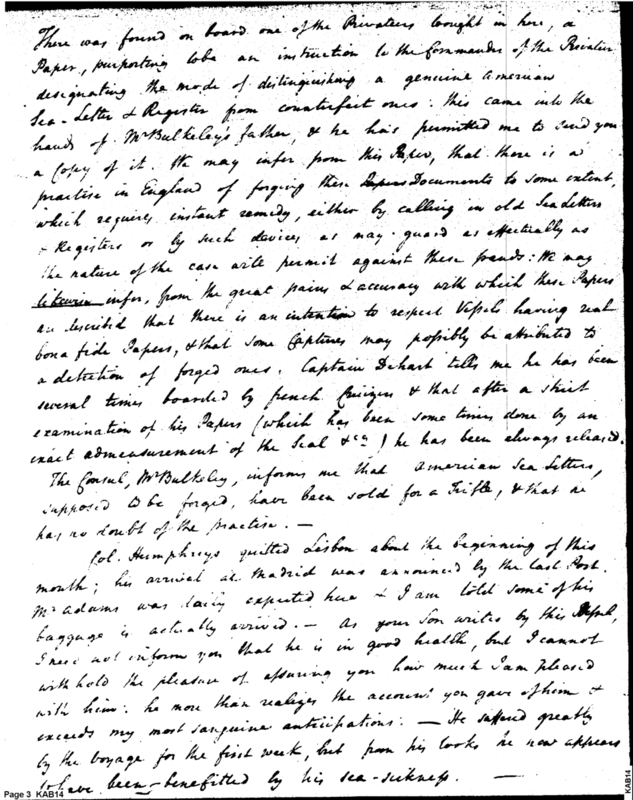 There was found on board one of the Privateers brought in here, a
Paper, purporting to be an instruction to the Commander of the Privateer
designating the mode of distinguishing a genuine American
Sea-Letter & Register from counterfeit ones: this came into the
hands of Mr Bulkeley's father, & he has permitted me to send you
a Copy of it. We may infer from this Paper, that there is a
practise in England of forging these Papers Documents to some extent,
which requires instant remedy, either by calling in old Sea Letters
& Registers or by such devices as may guard as effectually as
the nature of the case will permit against these frauds: We may
likewise infer, from the great pains & accuracy with which these Papers
are described that there is an intention to respect Vessels having real
bona fide Papers, & that some Captures may possibly be attributed to
a detection of forged ones. Captain Dehart tells me he has been
several times boarded by french Cruizers & that after a strict
examination of his Papers (which has been some times done by an
exact admeasurement of the Seal &ca) he has been always released.
The Consul, Mr Bulkeley, informs me that American Sea Letters,
supposed to be forged, have been sold for a Trifle, & that he
has no doubt of the practise. —
Col. Humphreys quitted Lisbon about the beginning of this
month; his arrival at Madrid was announced by the last Post.
Mr Adams was daily expected here & I am told some of his
baggage is actually arrived. — As your Son writes by this Vessel,
I need not inform you that he is in good health, but I cannot
withhold the pleasure of assuring you how much I am pleased
with him: he more than realizes the account you gave of him &
exceeds my most sanguine anticipations. — He suffered greatly
by the voyage for the first week, but from his looks he now appears
to have been benefitted by his sea-sickness. —
Page 3 KAB14
KAB14